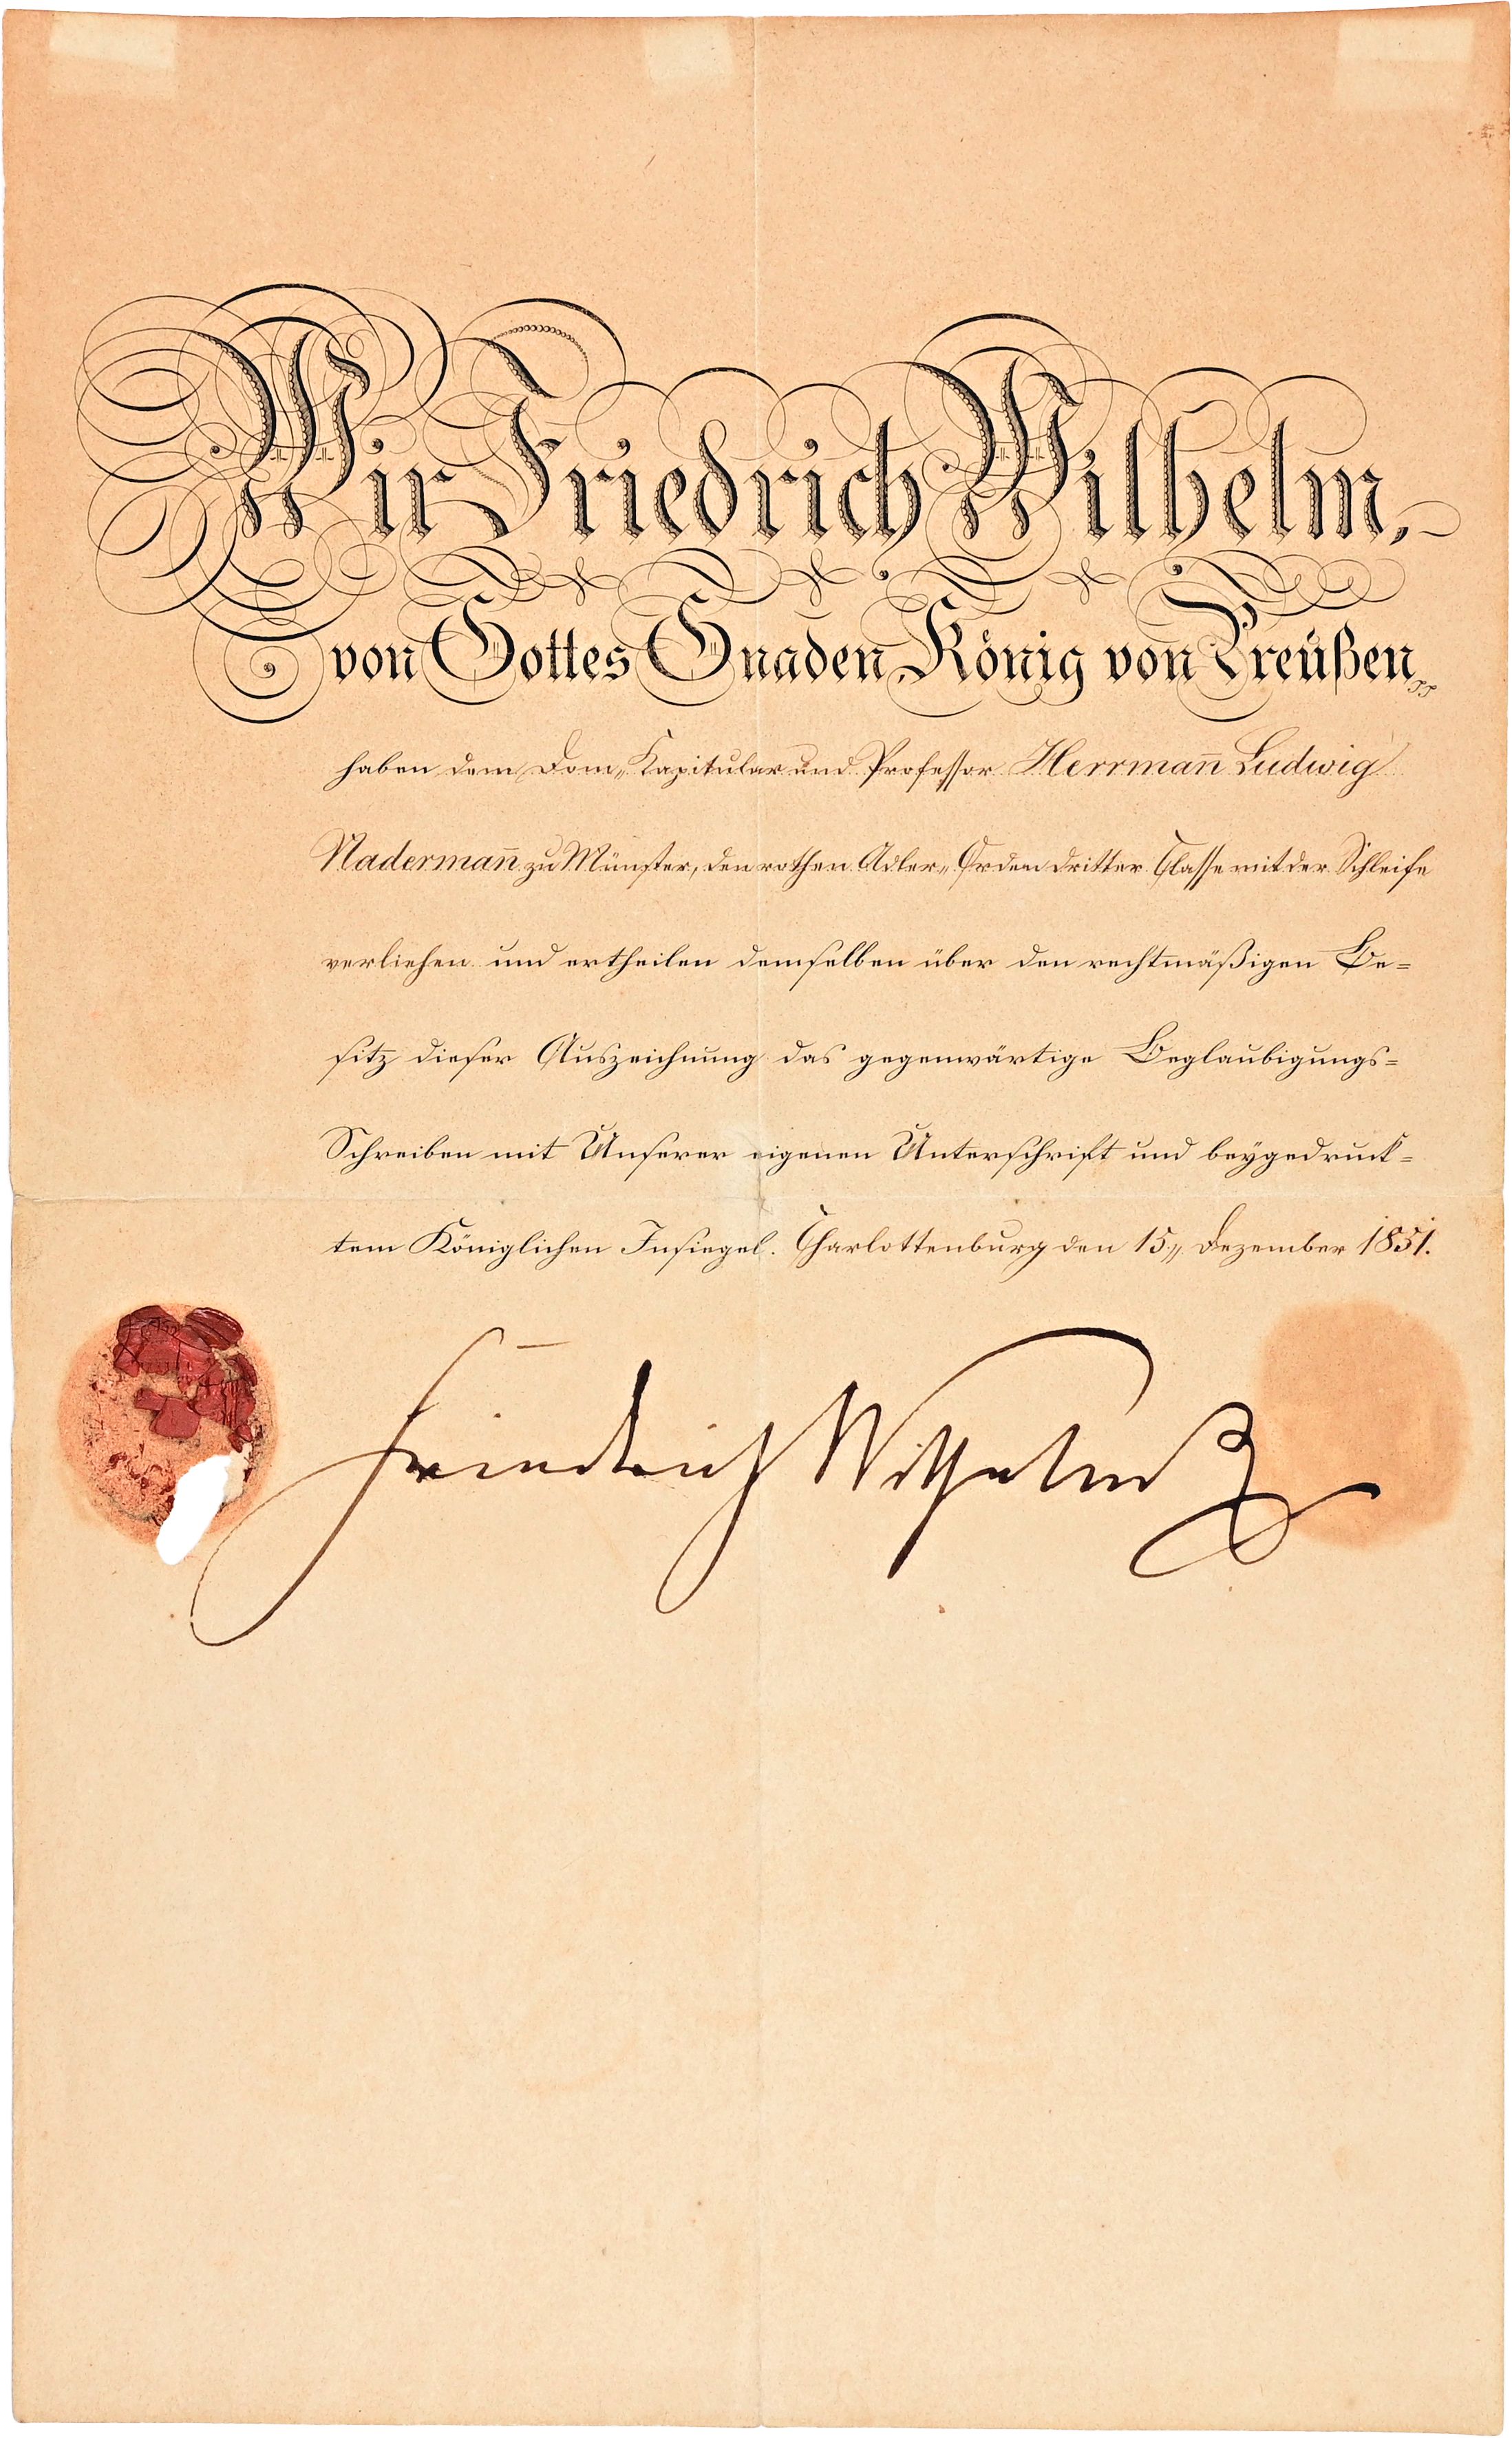 Wir Friedrich Wilhelm,
von Gottes Gnaden König von Preußen,
haben dem Dom-Kapitular und Professor Herrmañ Ludwig
Nadermañ zu Münster, den rothen Adler-Orden dritter Classe mit der Schleife
verliehen und ertheilen demselben über den rechtmäßigen Be=
sitz dieser Auszeichnung das gegenwärtige Beglaubigungs=
Schreiben mit Unserer eigenen Unterschrift und beygedruck=
tem Königlichen Insiegel. Charlottenburg den 15„ Dezember 1851.
Friedrich Wilhelm R